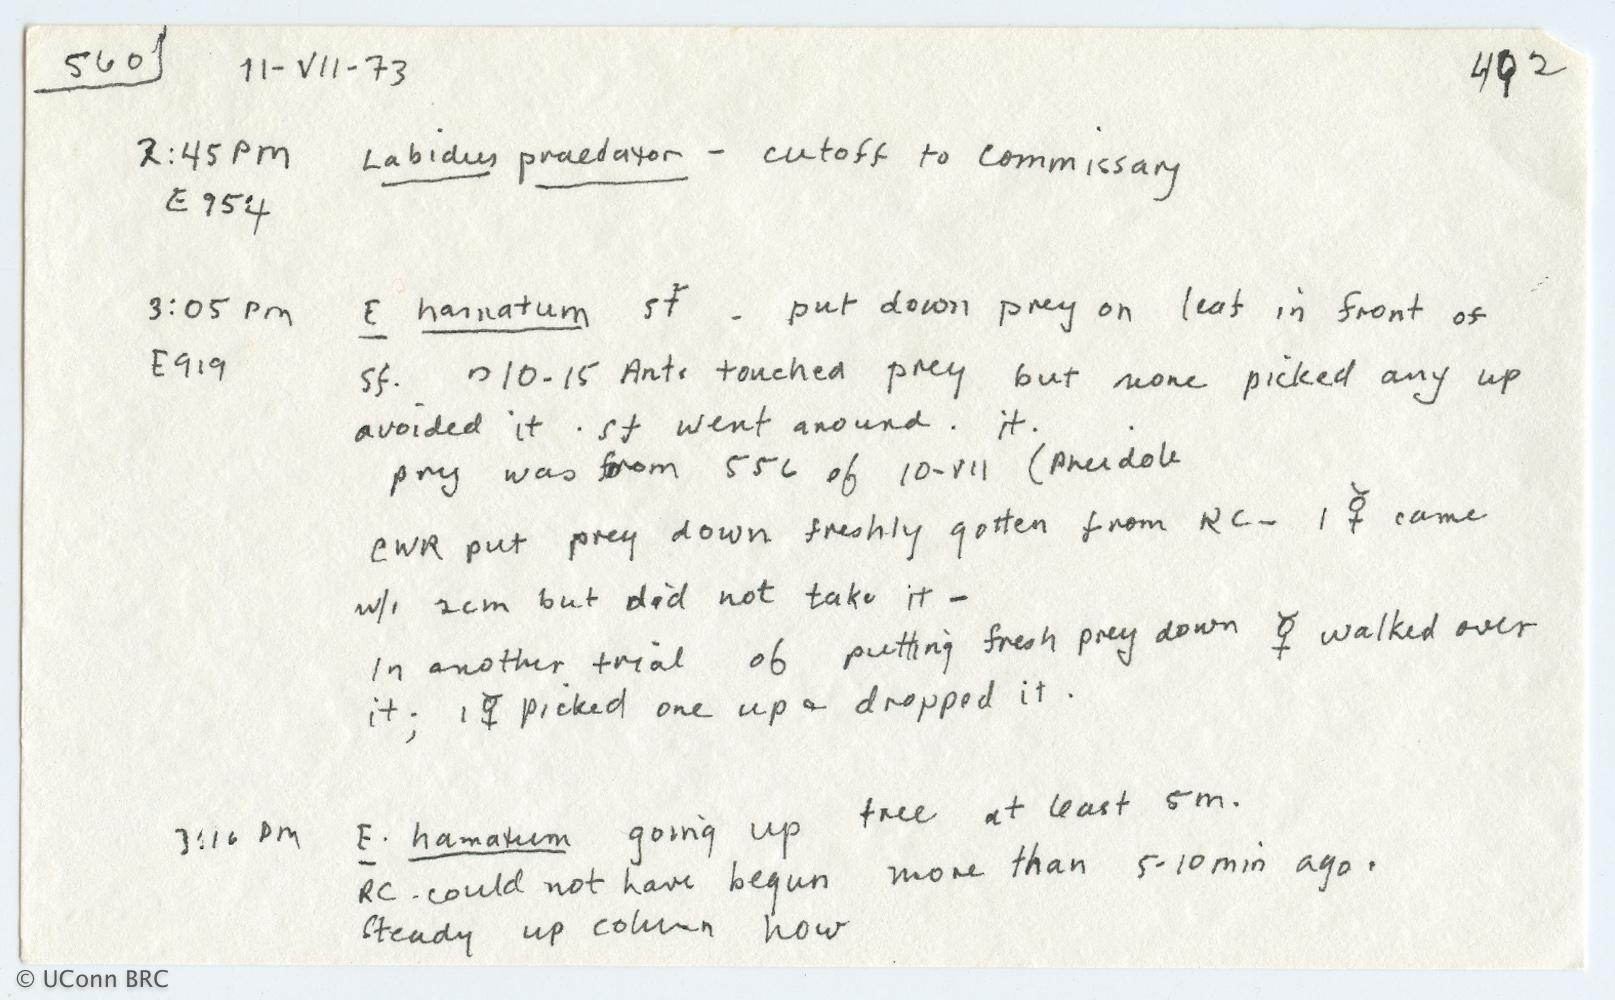 560 11-VII-73 492
2:45 PM Labidus praedator - cutoff to commissary
E954
3:05 PM E hamatum sf - put down prey on leaf in front of
E919 sf. 10-15 Ants touched prey but none picked any up
avoided it. sf went around. it.
prey was from 556 of 10-VII (Pheidole
CWR put prey down freshly gotten from RC - 1 ☿ came
w/i 2cm but did not take it -
In another trial of putting fresh prey down ☿ walked over
it; 1 ☿ picked one up & dropped it.
3:16 PM E. hamatum going up tree at least 5m.
RC. could not have begun more than 5-10 min ago.
Steady up column now
© UConn BRC